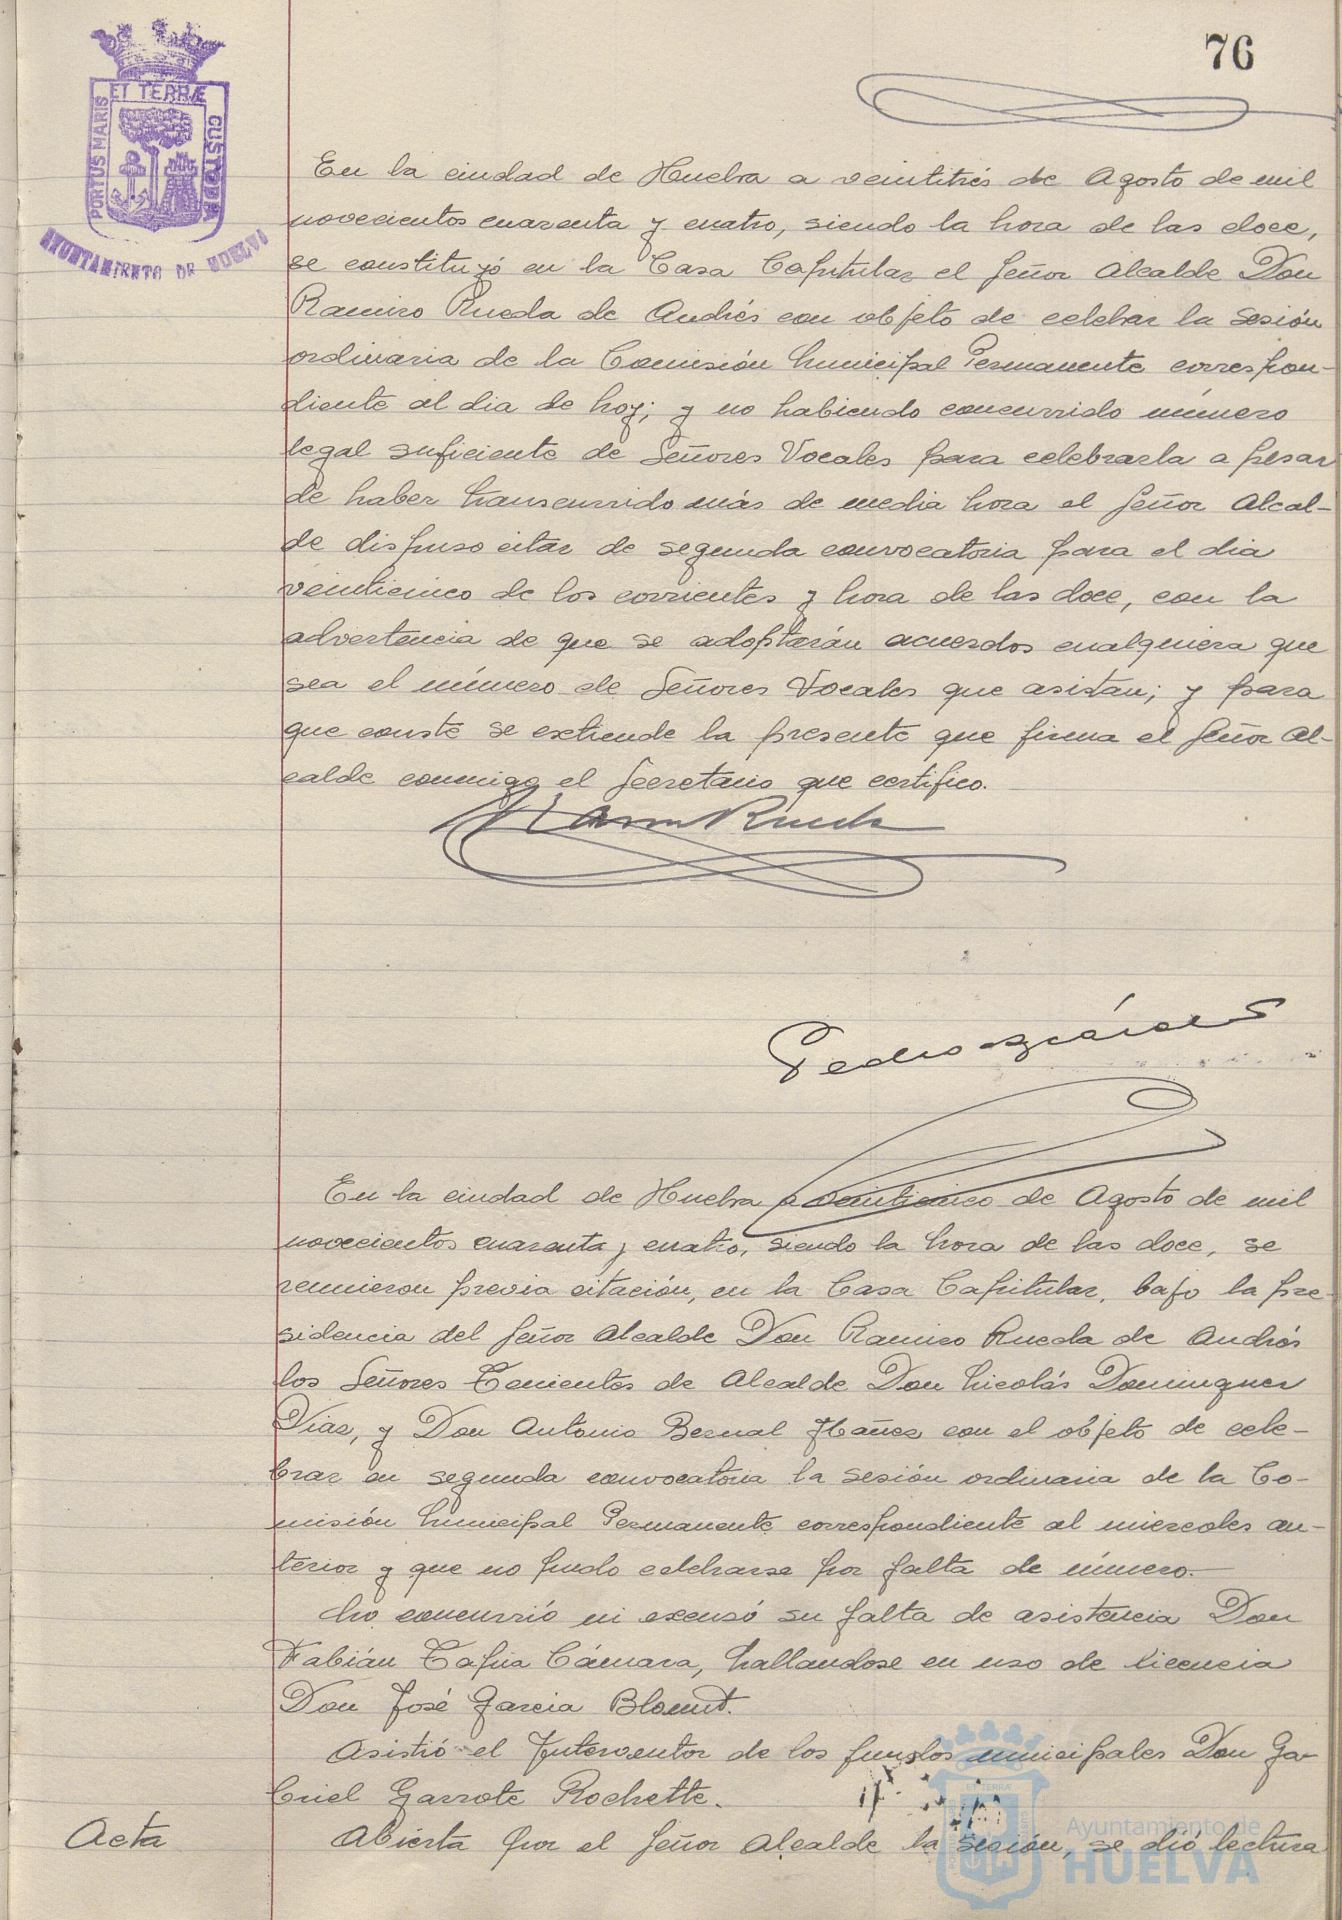 76
PORTUS MARIS ET TERRÆ CUSTODIA
AYUNTAMIENTO DE HUELVA
En la ciudad de Huelva a veintitrés de Agosto de mil
novecientos cuarenta y cuatro, siendo la hora de las doce,
se constituyó en la Casa Capitular el Señor Alcalde Don
Ramiro Rueda de Andrés con objeto de celebrar la sesión
ordinaria de la Comisión Municipal Permanente correspon-
diente al dia de hoy; y no habiendo concurrido número
legal suficiente de Señores Vocales para celebrarla a pesar
de haber transcurrido más de media hora el Señor Alcal-
de dispuso citar de segunda convocatoria para el dia
veinticinco de los corrientes y hora de las doce, con la
advertencia de que se adoptarán acuerdos cualquiera que
sea el número de Señores Vocales que asistan; y para
que conste se extiende la presente que firma el Señor Al-
calde conmigo el Secretario que certifico.
Ramiro Rueda
Pedro
En la ciudad de Huelva a veinticinco de Agosto de mil
novecientos cuarenta y cuatro, siendo la hora de las doce, se
reunieron previa citación, en la Casa Capitular, bajo la pre-
sidencia del Señor Alcalde Don Ramiro Rueda de Andrés
los Señores Tenientes de Alcalde Don Nicolás Dominguez
Diaz, y Don Antonio Bernal Ibañez con el objeto de cele-
brar en segunda convocatoria la sesión ordinaria de la Co-
misión Municipal Permanente correspondiente al miercoles an-
terior y que no pudo celebrarse por falta de número.
No concurrió ni excusó su falta de asistencia Don
Fabián Tapia Cámara, hallandose en uso de licencia
Don José Garcia Blount.
Asistió el Interventor de los fondos municipales Don Ga-
briel Garrote Rochette.
Acta Abierta por el Señor Alcalde la sesión, se dió lectura
Ayuntamiento de
HUELVA